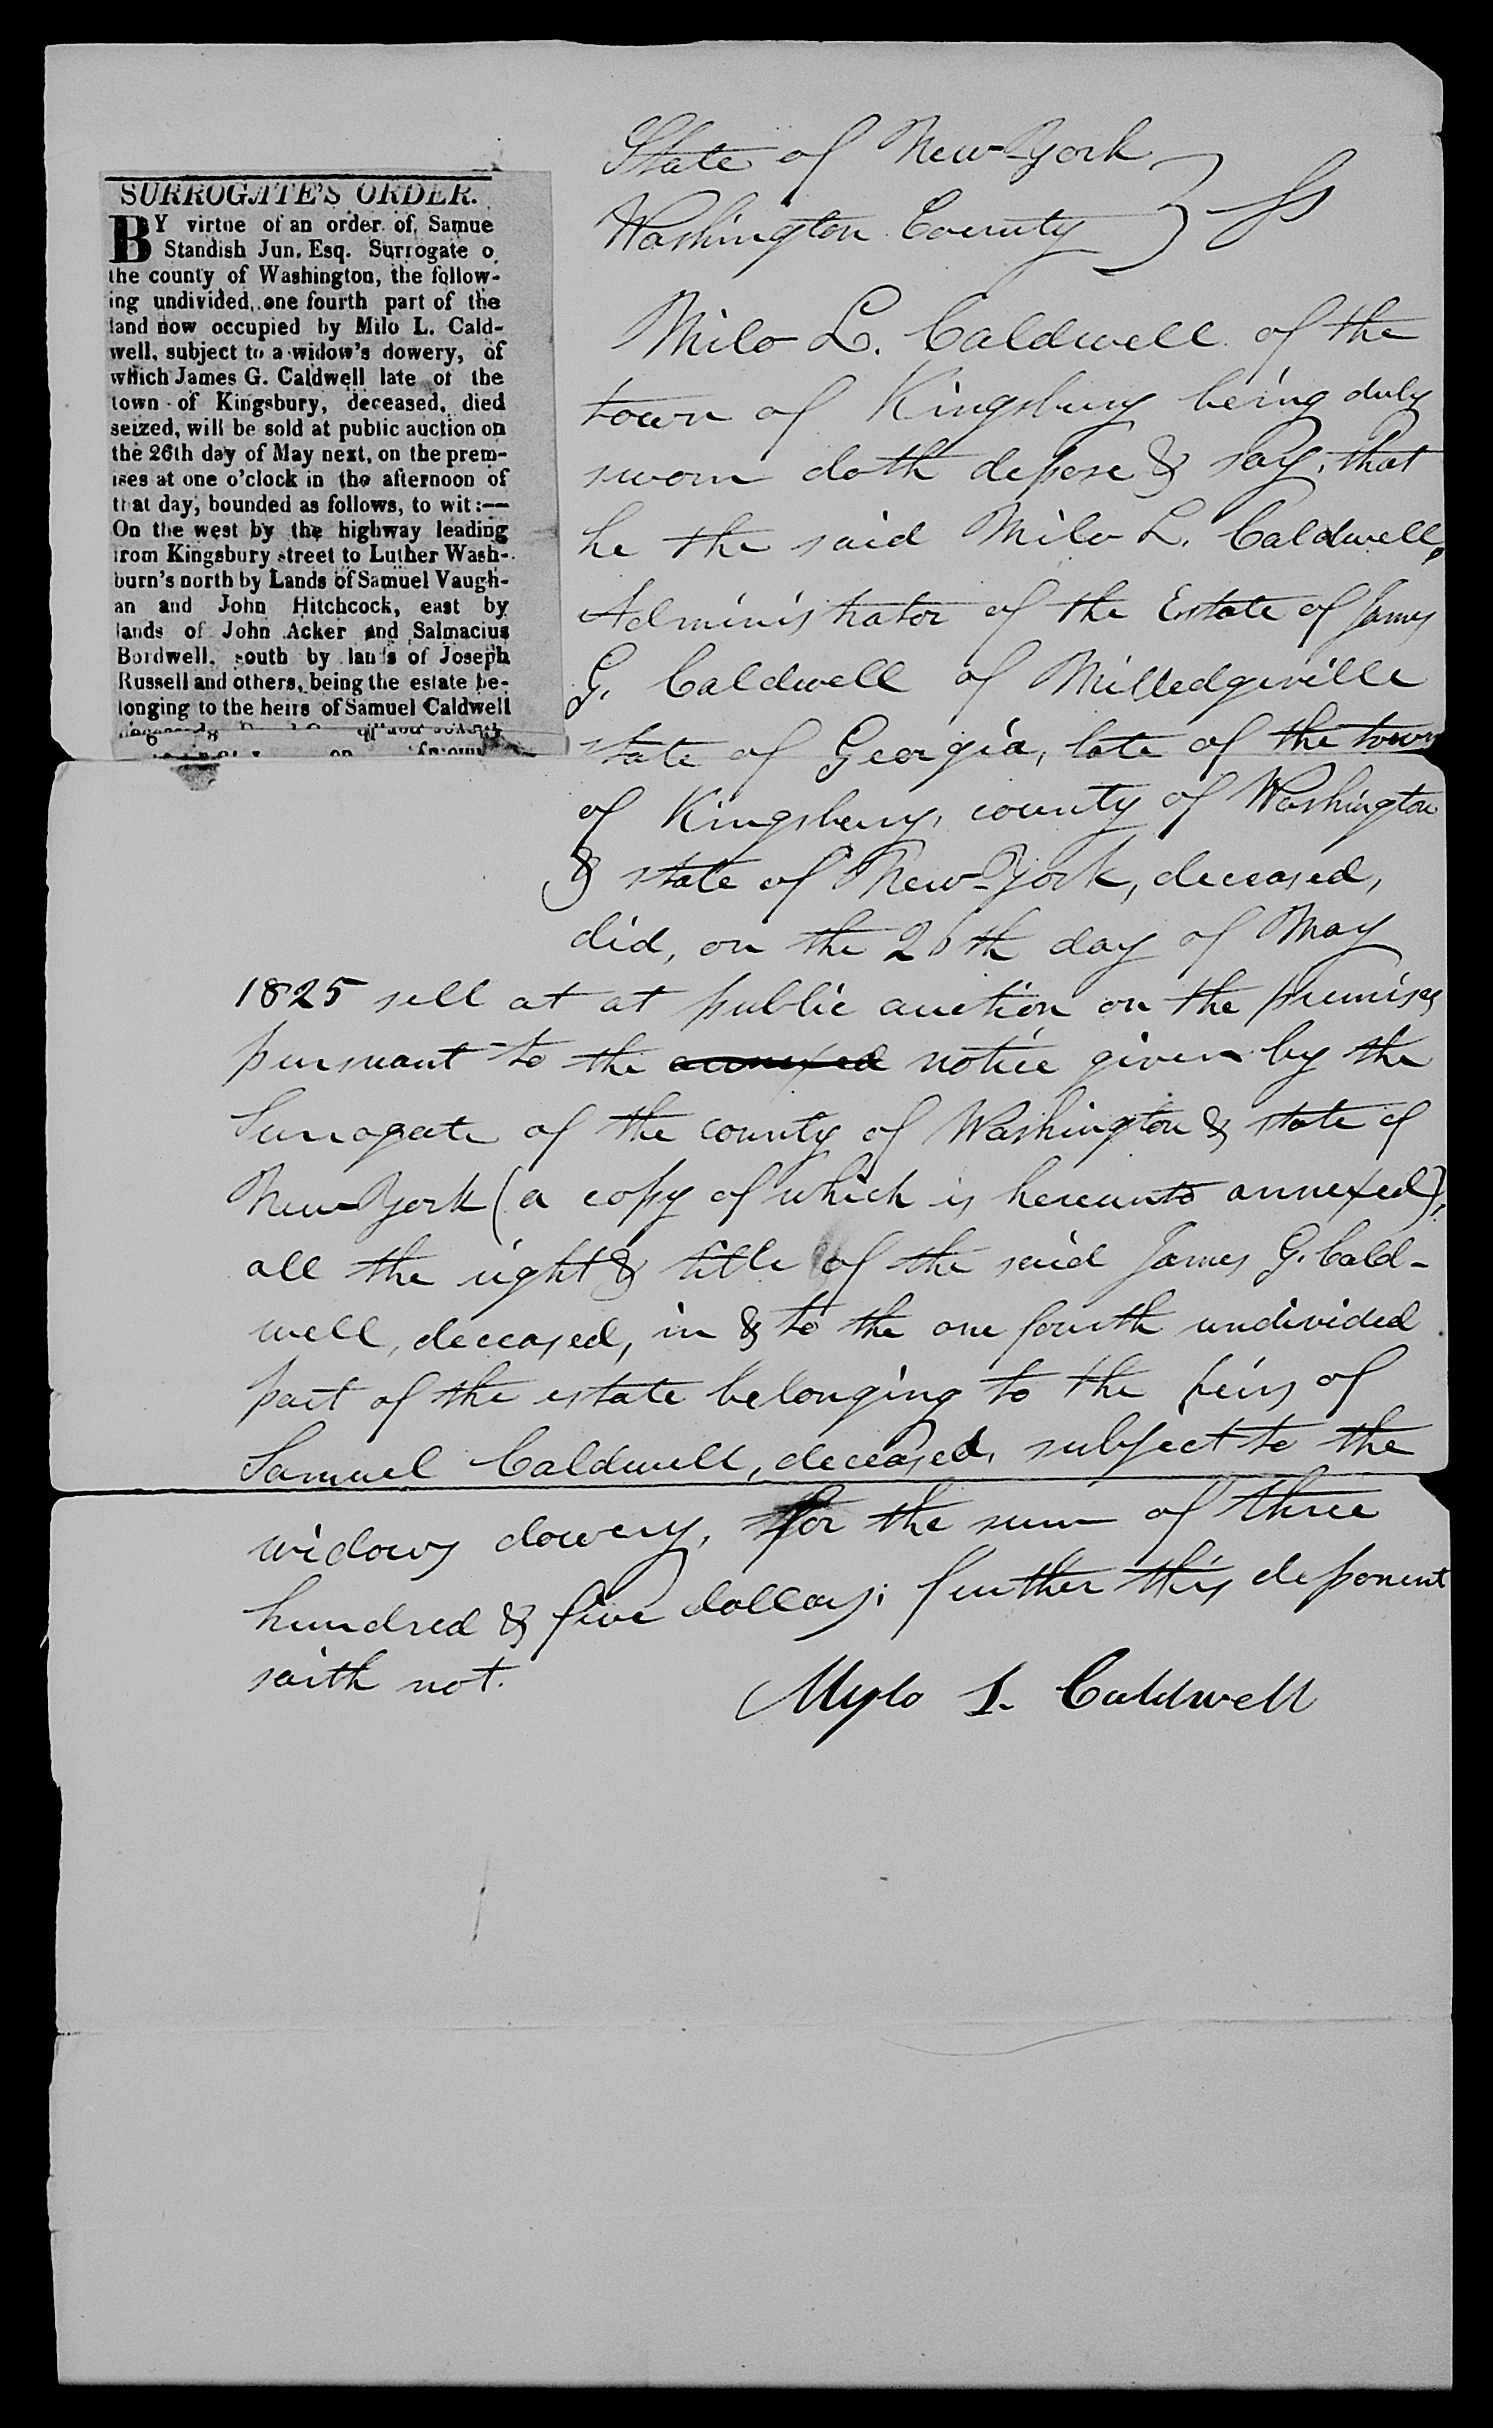 SURROGATE'S ORDER.
BY virtue of an order of Samue
Standish Jun. Esq. Surrogate o
the county of Washington, the follow-
ing undivided, one fourth part of the
land now occupied by Milo L. Cald-
well, subject to a widow's dowery, of
which James G. Caldwell late of the
town of Kingsbury, deceased, died
seized, will be sold at public auction on
the 26th day of May next, on the prem-
ises at one o'clock in the afternoon of
that day, bounded as follows, to wit:—
On the west by the highway leading
from Kingsbury street to Luther Wash-
burn's north by Lands of Samuel Vaugh-
an and John Hitchcock, east by
lands of John Acker and Salmacius
Bordwell, south by lands of Joseph
Russell and others, being the estate be-
longing to the heirs of Samuel Caldwell
State of New-York
Washington County } ss
Milo L. Caldwell of the
town of Kingsbury being duly
sworn doth depose & say, that
he the said Milo L. Caldwell,
Administrator of the Estate of James
G. Caldwell of Milledgeville
state of Georgia, late of the town
of Kingsbury, county of Washington
& state of New-York, deceased,
did, on the 26th day of May
1825 sell at at public auction on the premises
pursuant to the annexed notice given by the
Surrogate of the county of Washington & state of
New York (a copy of which is hereunto annexed),
all the right & title of the said James G. Cald-
well, deceased, in & to the one fourth undivided
part of the estate belonging to the heirs of
Samuel Caldwell, deceased, subject to the
widows dowery, for the sum of three
hundred & five dollars; further this deponent
saith not.
Mylo L. Caldwell